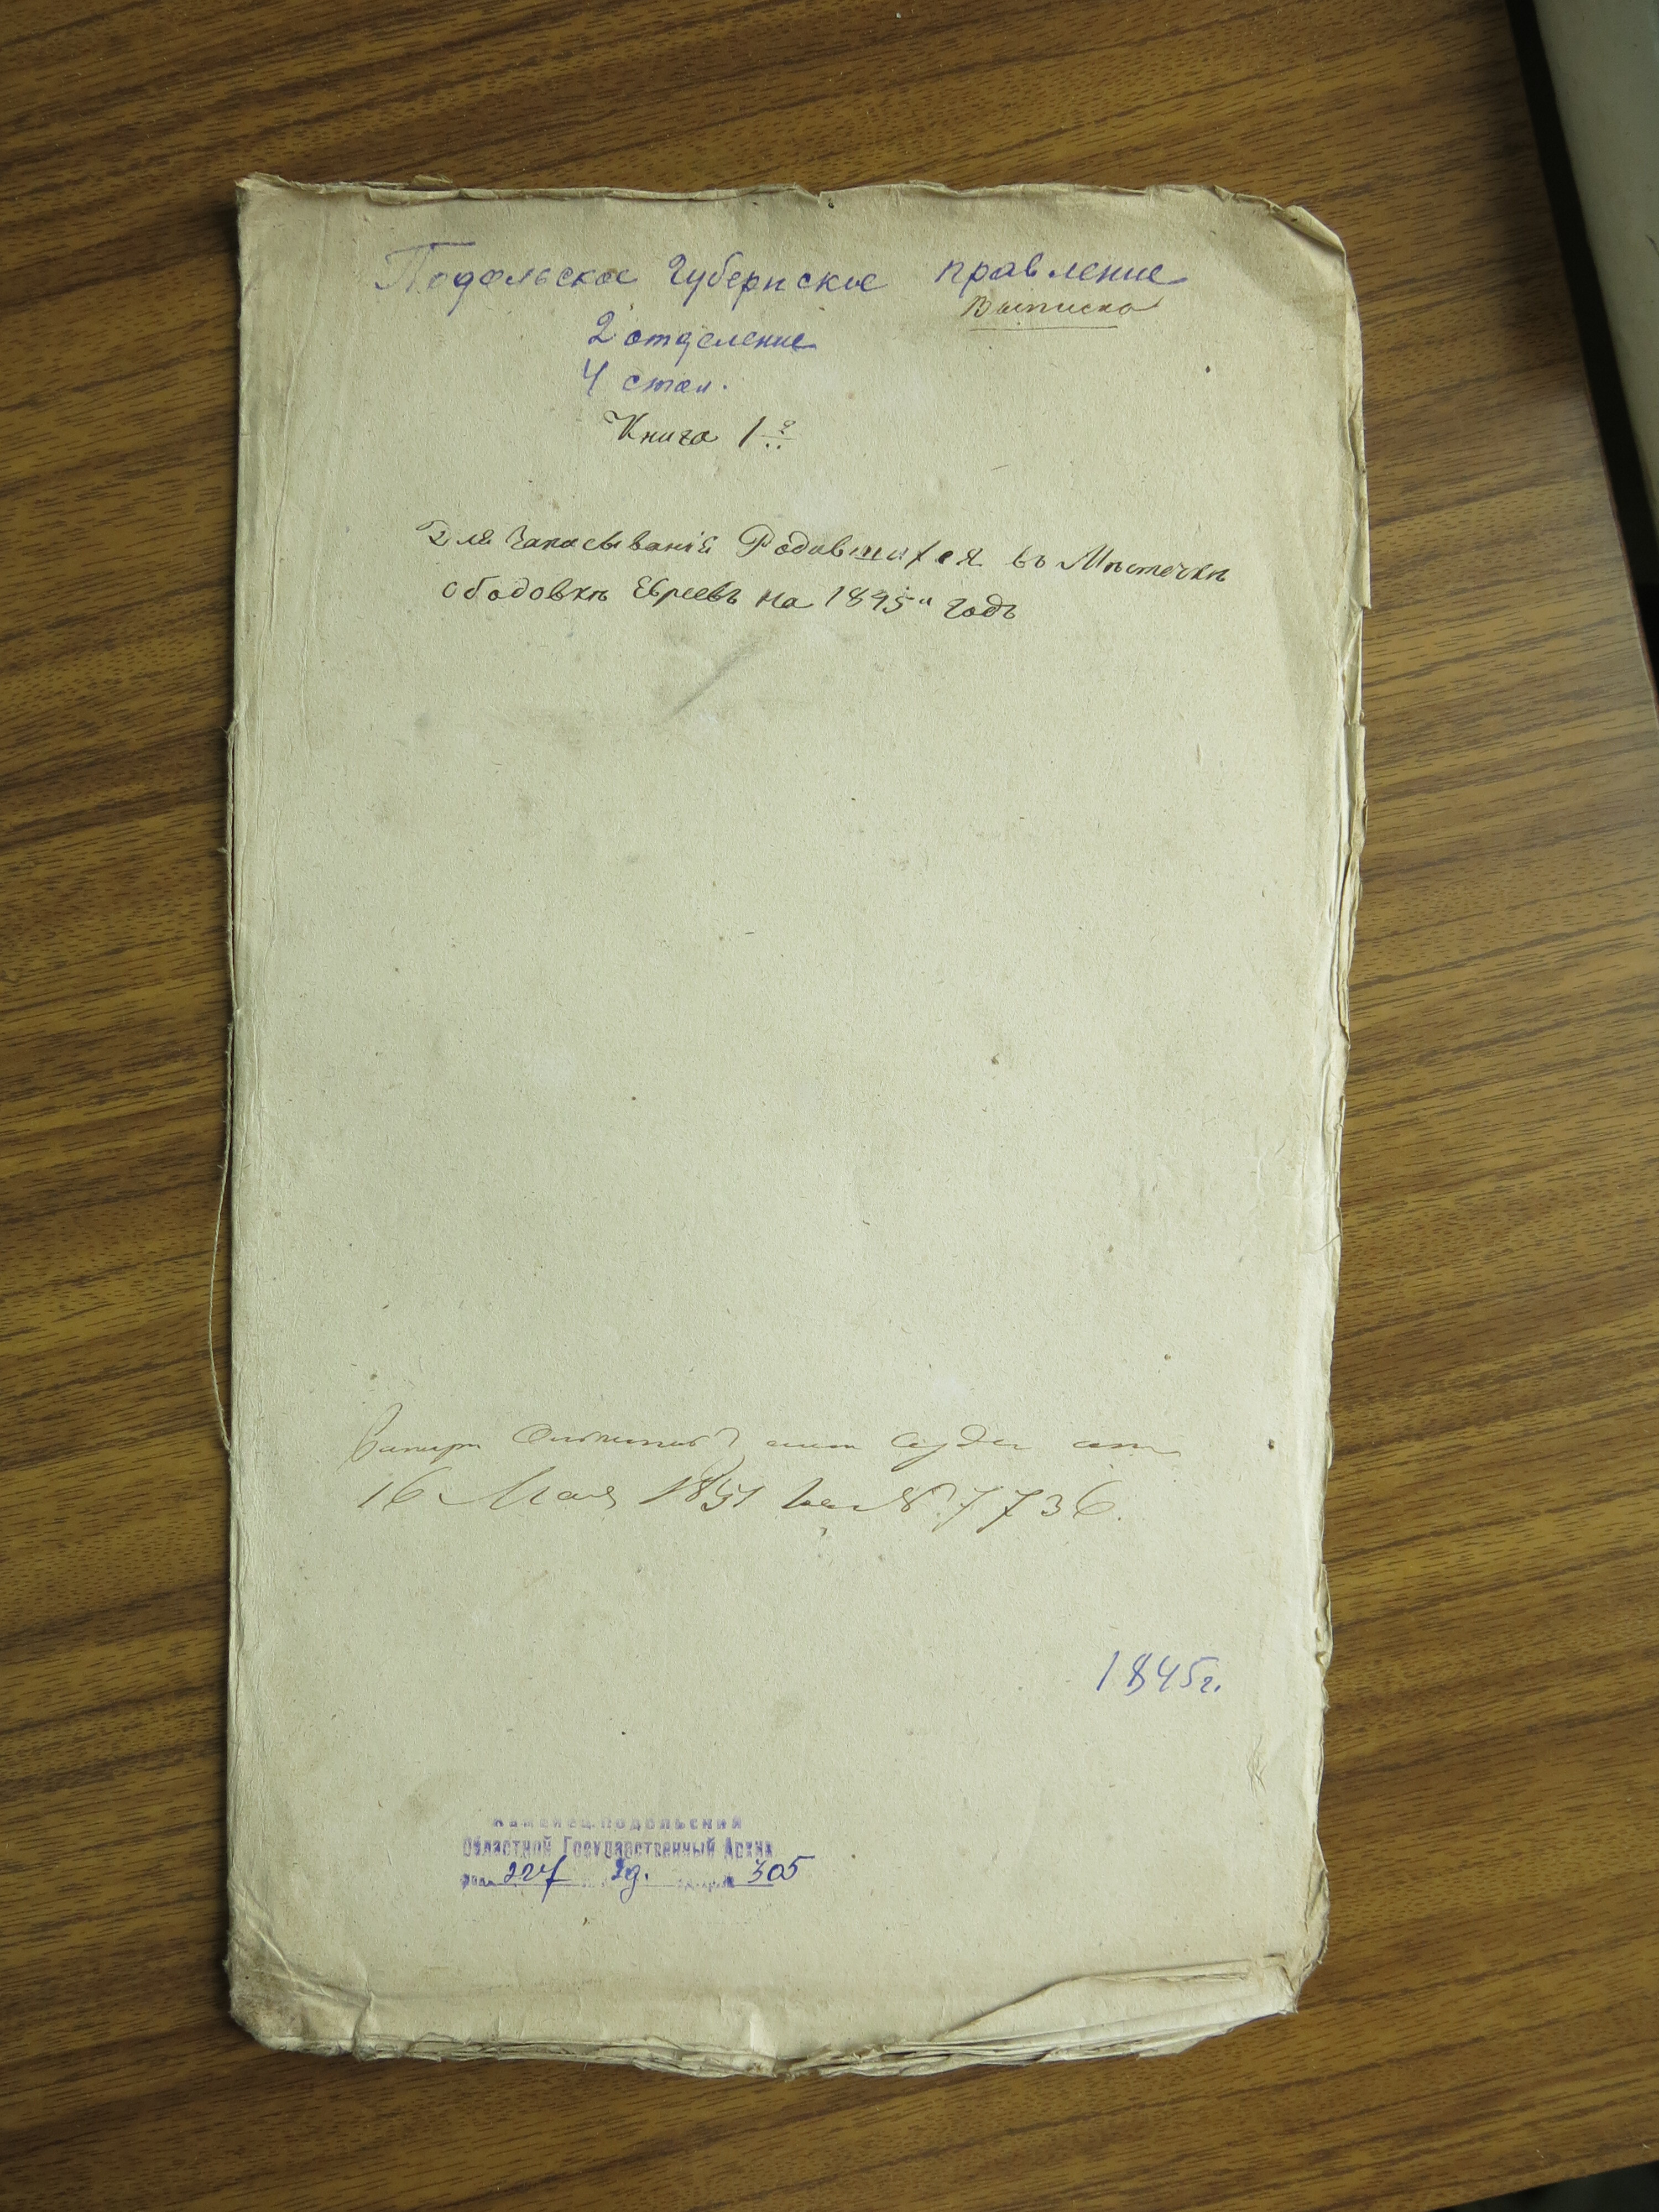 Подольское Губернское правление
Выписка
2 отделение
4 стол.
Книга 1я
Для Записыванія Родившихся въ Мѣстечкѣ
ободовкѣ Евреевъ на 1845й годъ
суда от
16 Мая 1851 за № 7736.
1845г.
Каменец-Подольский
Областной Государственный Архив
фонд 227 2д. 305